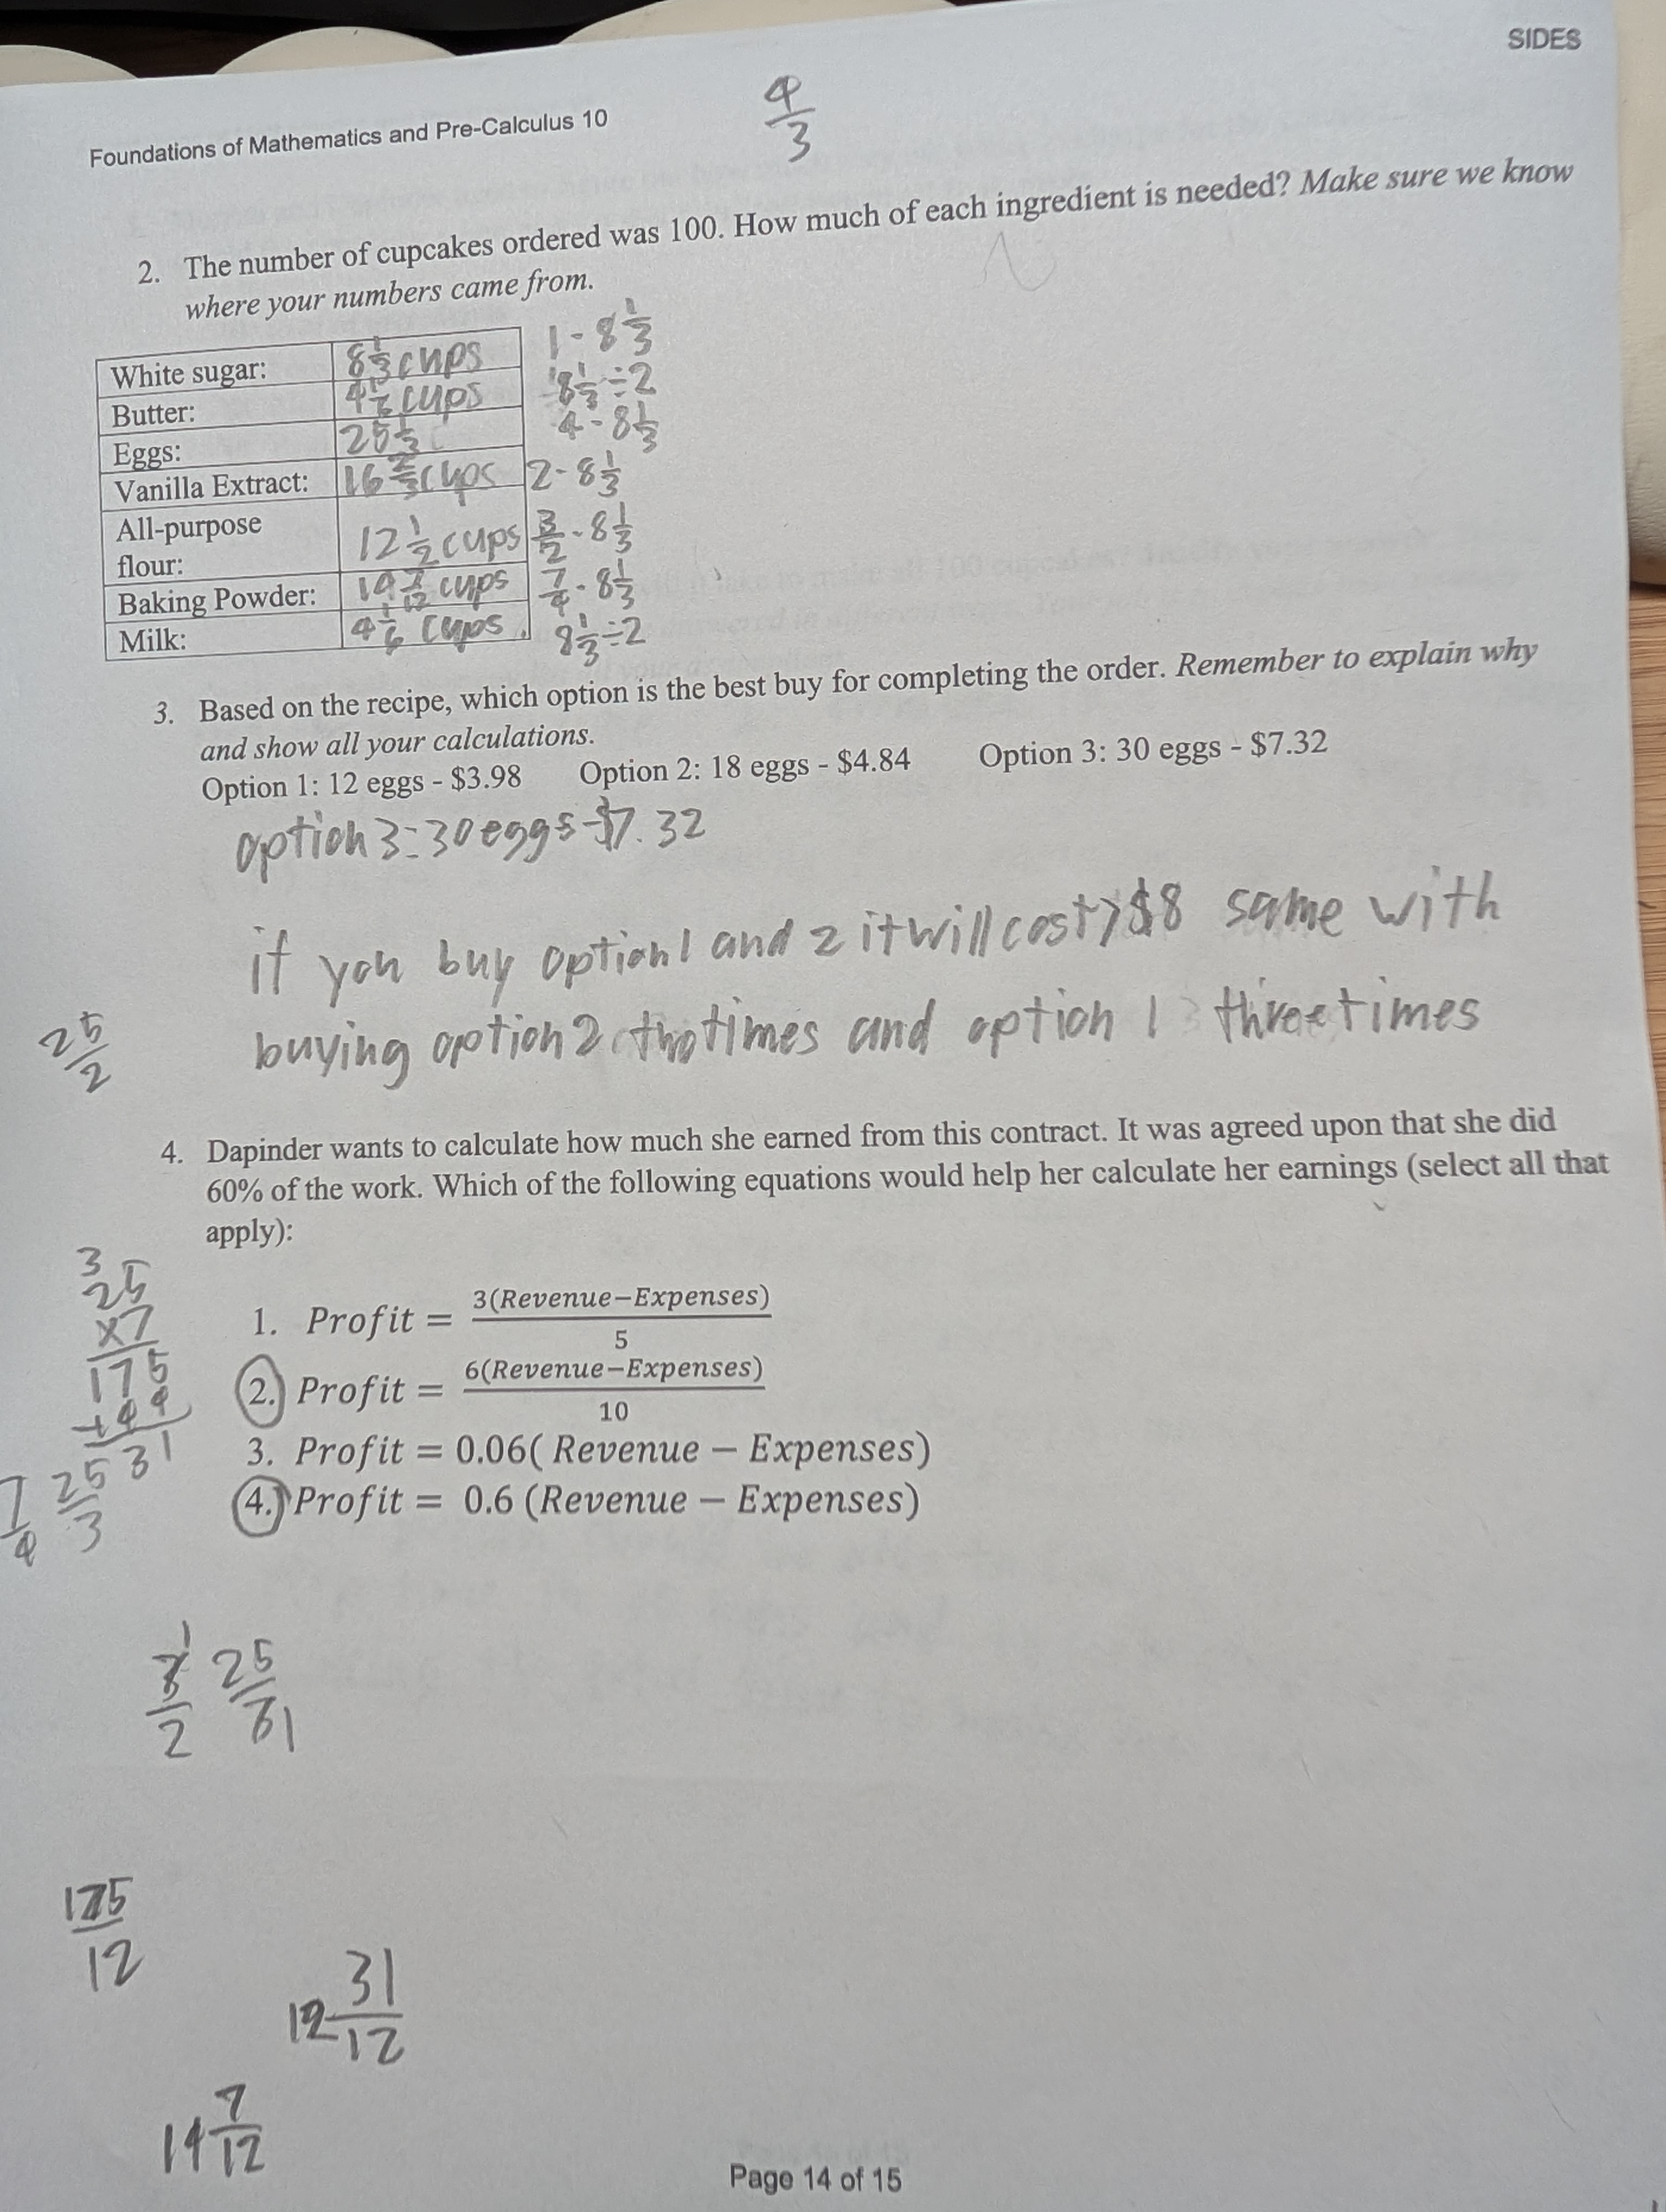 SIDES
Foundations of Mathematics and Pre-Calculus 10
4/3
2. The number of cupcakes ordered was 100. How much of each ingredient is needed? Make sure we know
where your numbers came from.
White sugar: 8 1/3 cups 1 - 8 1/3
Butter: 4 1/6 cups 8 1/3 ÷ 2
Eggs: 4 - 8 1/3
Vanilla Extract: 16 2/3 cups 2 - 8 1/3
All-purpose
flour: 12 1/2 cups 3/2 - 8 1/3
Baking Powder: 14 7/12 cups 7/4 - 8 1/3
Milk: 4 1/6 cups. 8 1/3 ÷ 2
3. Based on the recipe, which option is the best buy for completing the order. Remember to explain why
and show all your calculations.
Option 1: 12 eggs - $3.98 Option 2: 18 eggs - $4.84 Option 3: 30 eggs - $7.32
option 3: 30 eggs - $7.32
if you buy option 1 and 2 it will cost > $8 same with
buying option 2 two times and option 1 three times
25/2
4. Dapinder wants to calculate how much she earned from this contract. It was agreed upon that she did
60% of the work. Which of the following equations would help her calculate her earnings (select all that
apply):
1. Profit = 3(Revenue−Expenses)/5
2. Profit = 6(Revenue−Expenses)/10
3. Profit = 0.06( Revenue − Expenses)
4. Profit = 0.6 (Revenue − Expenses)
3
25
x7
175
+44
31
7/4 25/3
3/2 1 25/3 1
175/12
12 31/12
14 7/12
Page 14 of 15